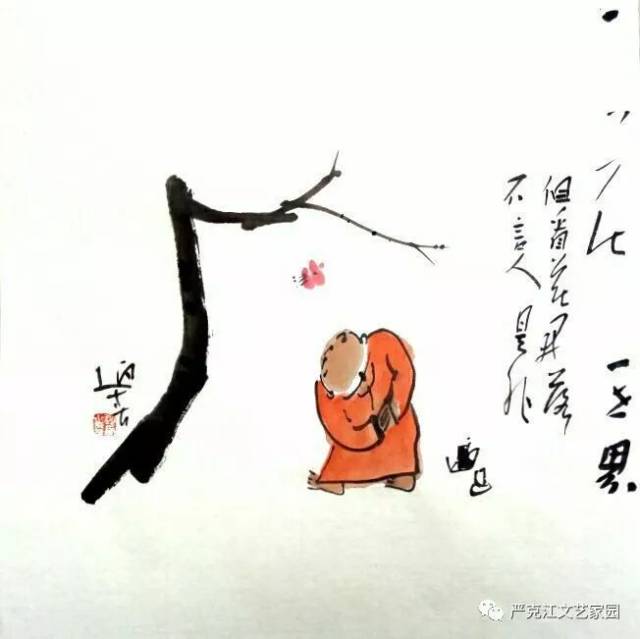 一花一世界
但看花开落
不言人是非
严克江文艺家园